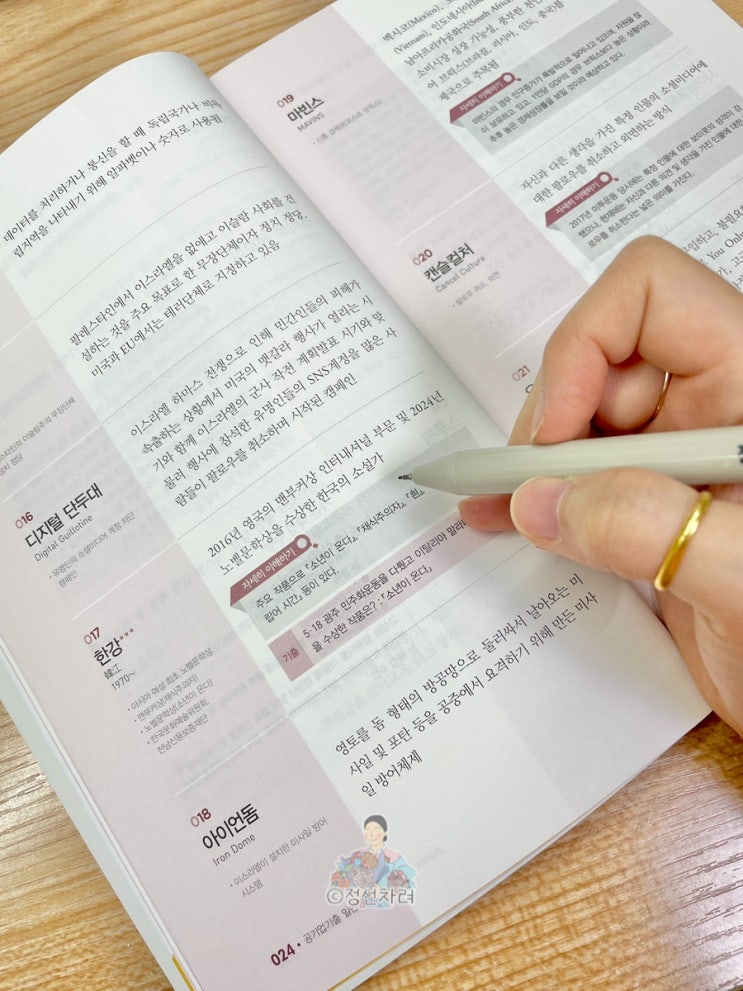 데이터를 처리하거나 통신을 할 때 독립국가나 비독
립지역을 나타내기 위해 알파벳이나 숫자로 사용됨
팔레스타인에서 이스라엘을 없애고 이슬람 사회를 건
설하는 것을 주요 목표로 한 무장단체이자 정치 정당.
미국과 EU에서는 테러단체로 지정하고 있음
정치 정당
016
디지털 단두대
Digital Guillotine
• 유명인의 소셜미디어 계정 차단
캠페인
이스라엘 하마스 전쟁으로 인해 민간인들의 피해가
속출하는 상황에서 미국의 멧갈라 행사가 열리는 시
기와 함께 이스라엘의 군사 작전 계획발표 시기와 맞
물려 행사에 참석한 유명인들의 SNS계정을 많은 사
람들이 팔로우를 취소하며 시작된 캠페인
017
한강***
韓江
1970~
• 아시아 여성 최초 노벨문학상
• 맨부커상(채식주의자)
• 노벨문학상(소년이 온다)
• 한국문화예술위원회,
전남신용보증재단
2016년 영국의 맨부커상 인터내셔널 부문 및 2024년
노벨문학상을 수상한 한국의 소설가
자세히 이해하기
주요 작품으로 『소년이 온다』, 『채식주의자』, 『흰』,
랍어 시간』 등이 있다.
기출
5·18 광주 민주화운동을 다뤘고 이탈리아 말라파
을 수상한 작품은? - 『소년이 온다』
018
아이언돔
Iron Dome
• 이스라엘이 설치한 미사일 방어
시스템
영토를 돔 형태의 방공망으로 둘러싸서 날아오는 미
사일 및 포탄 등을 공중에서 요격하기 위해 만든 미사
일 방어체제
024 • 공기업기출 일반
©정선차려
019
마빈스
MAVINS
• 신흥 경제국(포스트 브릭스)
멕시코(Mexico),
(Vietnam), 인도네시아
남아프리카공화국(South Africa)
소비시장 성장 가능성, 풍부한 천연
어 브릭스(브라질, 러시아, 인도, 중국)를
제국으로 주목됨
자세히 이해하기
마빈스의 경우 인구증가가 폭발적으로 일어나고 있으며, 자원을 많
이 보유하고 있고, 1인당 GDP의 경우 브릭스보다 높은 상황이라
추후 높은 경제성장률을 보일 것이라 예상하고 있다.
020
캔슬컬처
Cancel Culture
• 팔로우 취소, 외면
자신과 다른 생각을 가진 특정 인물의 소셜미디어에
대한 팔로우를 취소하고 외면하는 방식
자세히 이해하기
2017년 미투운동 당시에는 특정 인물에 대한 보이콧의 성격이 강
했으나, 현재에는 자신과 다른 의견 및 생각을 가진 인물에 대한
로우를 취소한다는 넓은 의미를 가진다.
021
You Only